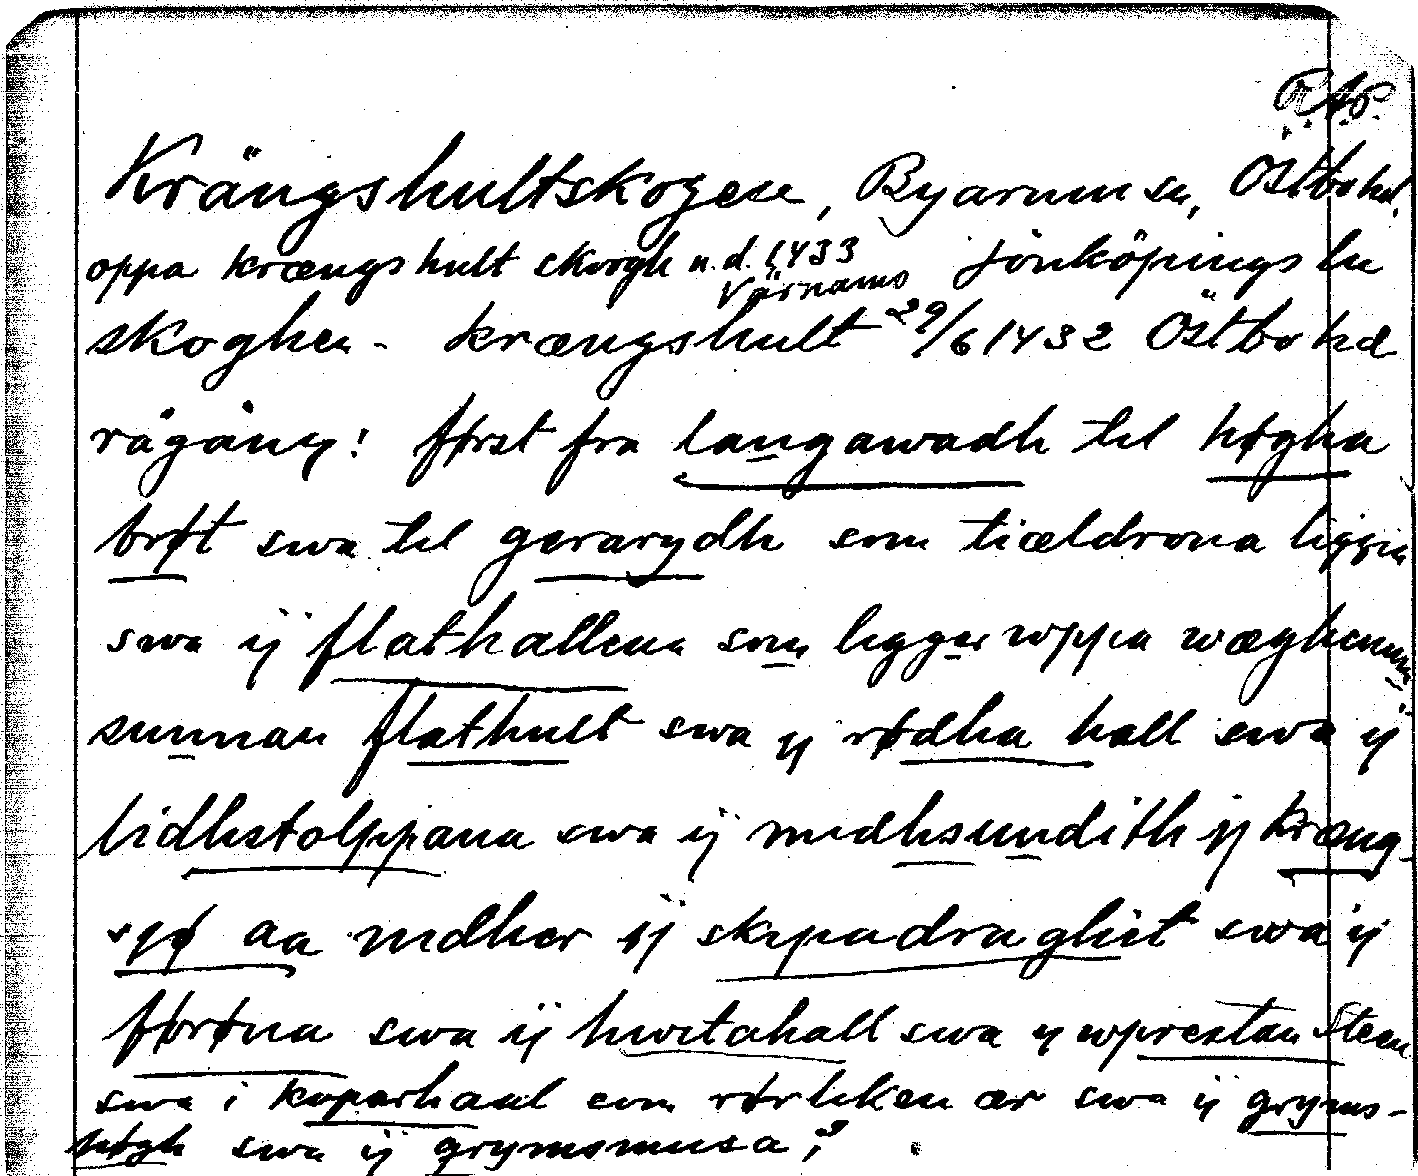 R.A.P.
Krängshultskogen, Byarum sn, Östbo hd.
oppa krængshult skogh u.d. 1433 Jönköpings län
Värnamo
skoghen - krængshult 29/6 1432 Östbo hd
rågång: först fra langawadh til høgha
brøt swa til gerarydh som tiældrona liggia
swa ij flathallena som ligger wppa wæghenum
sunnan flathult swa ij rødha hall swa ij
lidhstolppana swa ij medhsundith ij kræng-
siø aa nidher ij skipadraghit swa ij
førøna swa ij hwitahall swa ij wprestan Steen
swa i koparhaal som rørliken ær swa ij gryms-
høgh swa ij grymsmusa,